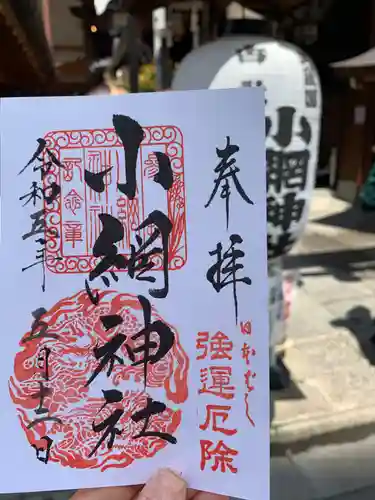 奉拝
日本橋
強運厄除
小網神社
令和五年五月十二日
小網神